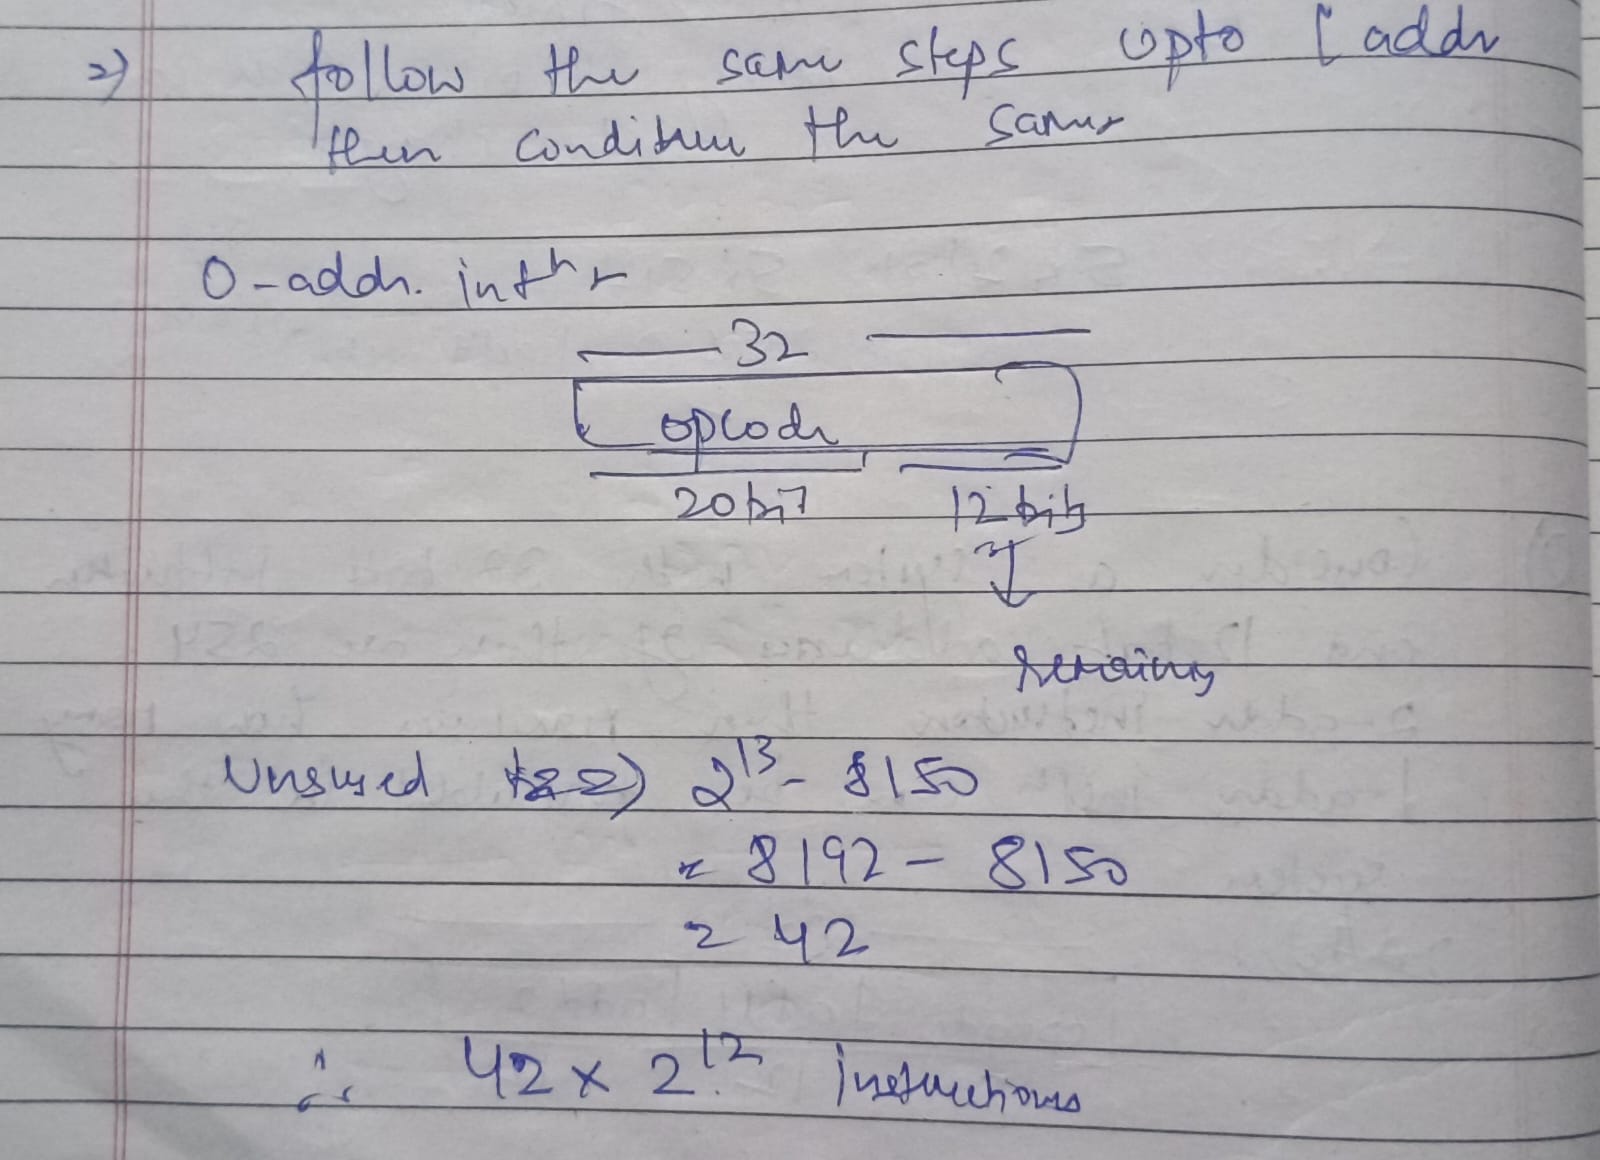 2) follow the same steps upto 1 addr
then condition the same
0-addr. intr
32
opcode
20 bit 12 bits
remaining
Unsused 2^13 - 8150
= 8192 - 8150
= 42
∴ 42 x 2^12 instructions